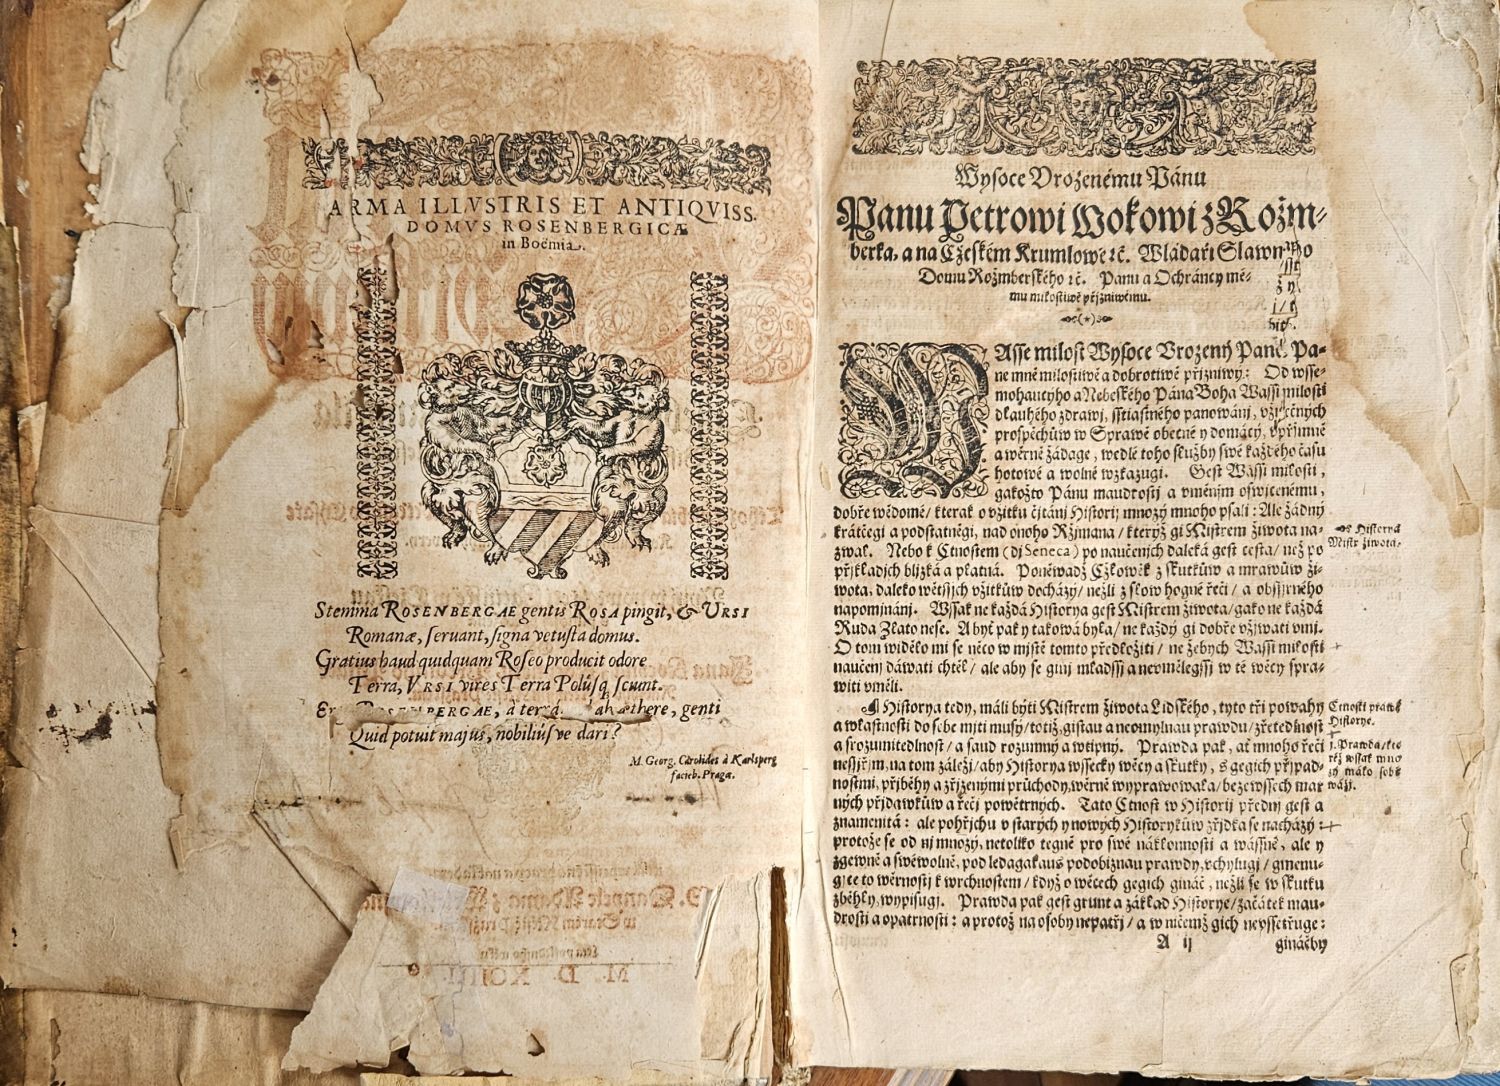 ARMA ILLVSTRIS ET ANTIQVISS.
DOMVS ROSENBERGICÆ
in Boëmia.
Stemma ROSENBERGAE gentis ROSA pingit, & URSI
Romanæ, servant, signa vetusta domus.
Gratius haud quidquam Roseo producit odore
Terra, URSI vires Terra Polúsq, sciunt.
ROSENBERGAE, à terra æthere, genti
Quid potuit majus, nobiliúsve dari?
M. Georg. Carolides à Karlsperg
facieb. Pragæ.
M. D. XCIIII.
Wysoce Vrozenému Pánu
Panu Petrowi Wokowi z Rožm⸗
berka, a na Cžeském Krumlowě ꝛč. Wládaři Slawného
Domu Rožmberského ꝛč. Panu a Ochráncy mé⸗
mu milostiwě přjzniwému.
WAsse milost Wysoce Vrozený Pane, Pa⸗
ne mně milostiwě a dobrotiwě přjzniwý: Od wsse⸗
mohaucýho a Nebeského Pána Boha Wassi milosti
dlauhého zdrawj, sstiastného panowánj, vžitečných
prospěchůw w Spráwě obecné y domácý, vpřjmně
a wěrně žádage, wedlé toho služby swé každého času
hotowé a wolné wzkazugi. Gest Wassi milosti,
gakožto Pánu maudrostj a vměnjm oswjcenému,
dobře wědomé/ kterak o vžitku čjtánj Historij mnozý mnoho psali: Ale žádný
krátčegi a podstatněgi, nad onoho Ržjmana/ kterýž gi Mistrem žiwota na⸗
zwal. Nebo k Ctnostem (dj Seneca) po naučenjch daleká gest cesta/ než po
přjkladjch bljzká a platná. Poněwadž Cžlowěk z skutkůw a mrawůw ži⸗
wota, daleko wětssjch vžitkůw docházý/ nežli z slow hogné řeči/ a obssjrného
napomjnánj. Wssak ne každá Historya gest Mistrem žiwota/ gako ne každá
Ruda Zlato nese. A byť pak y taková byla/ ne každý gi dobře vžjwati vmj.
O tom widělo mi se něco w mjstě tomto předložiti/ ne žebych Wassi milosti
naučenj dáwati chtěl/ ale aby se ginj mladssj a neumělegssj w té wěcy spra⸗
witi vměli.
¶ Historya tedy, máli býti Mistrem žiwota Lidského, tyto tři powahy
a wlastnosti do sebe mjti musý/ totiž, gistau a neomylnau prawdu/ zřetedlnost
a srozumitedlnost/ a saud rozumný a wtipný. Prawda pak, ať mnoho řečí
nessjřjm, na tom záležj/ aby Historya wssecky wěcy a skutky, s gegich přjpad⸗
nostmi, přjběhy a zřjzenými průchody, wěrně wyprawowala/ beze wssech mar
ných přjdawkůw a řečj powětrných. Tato Ctnost w Historij přednj gest a
znamenitá: ale pohřjchu v starých y nowých Historykůw zřjdka se nacházý:
protože se od nj mnozý, netoliko tegně pro swé náklonnosti a wássně, ale y
zgewně a swěwolně, pod ledagakaus podobiznau prawdy, vchylugj/ ginenu⸗
gjce to wěrnostj k wrchnostem/ když o wěcech gegich gináč, nežli se w skutku
zběhly, wypisugj. Prawda pak gest grunt a základ Historye/ začátek mau⸗
drosti a opatrnosti: a protož na osoby nepatřj/ a w ničemž gich nepssetřuge:
A ij
gináčby
Historya
Mistr žiwota.
Ctnosti prawé
Historye.
1. Prawda/ kte
réž wssak mno
zý málo sobě
wážj.